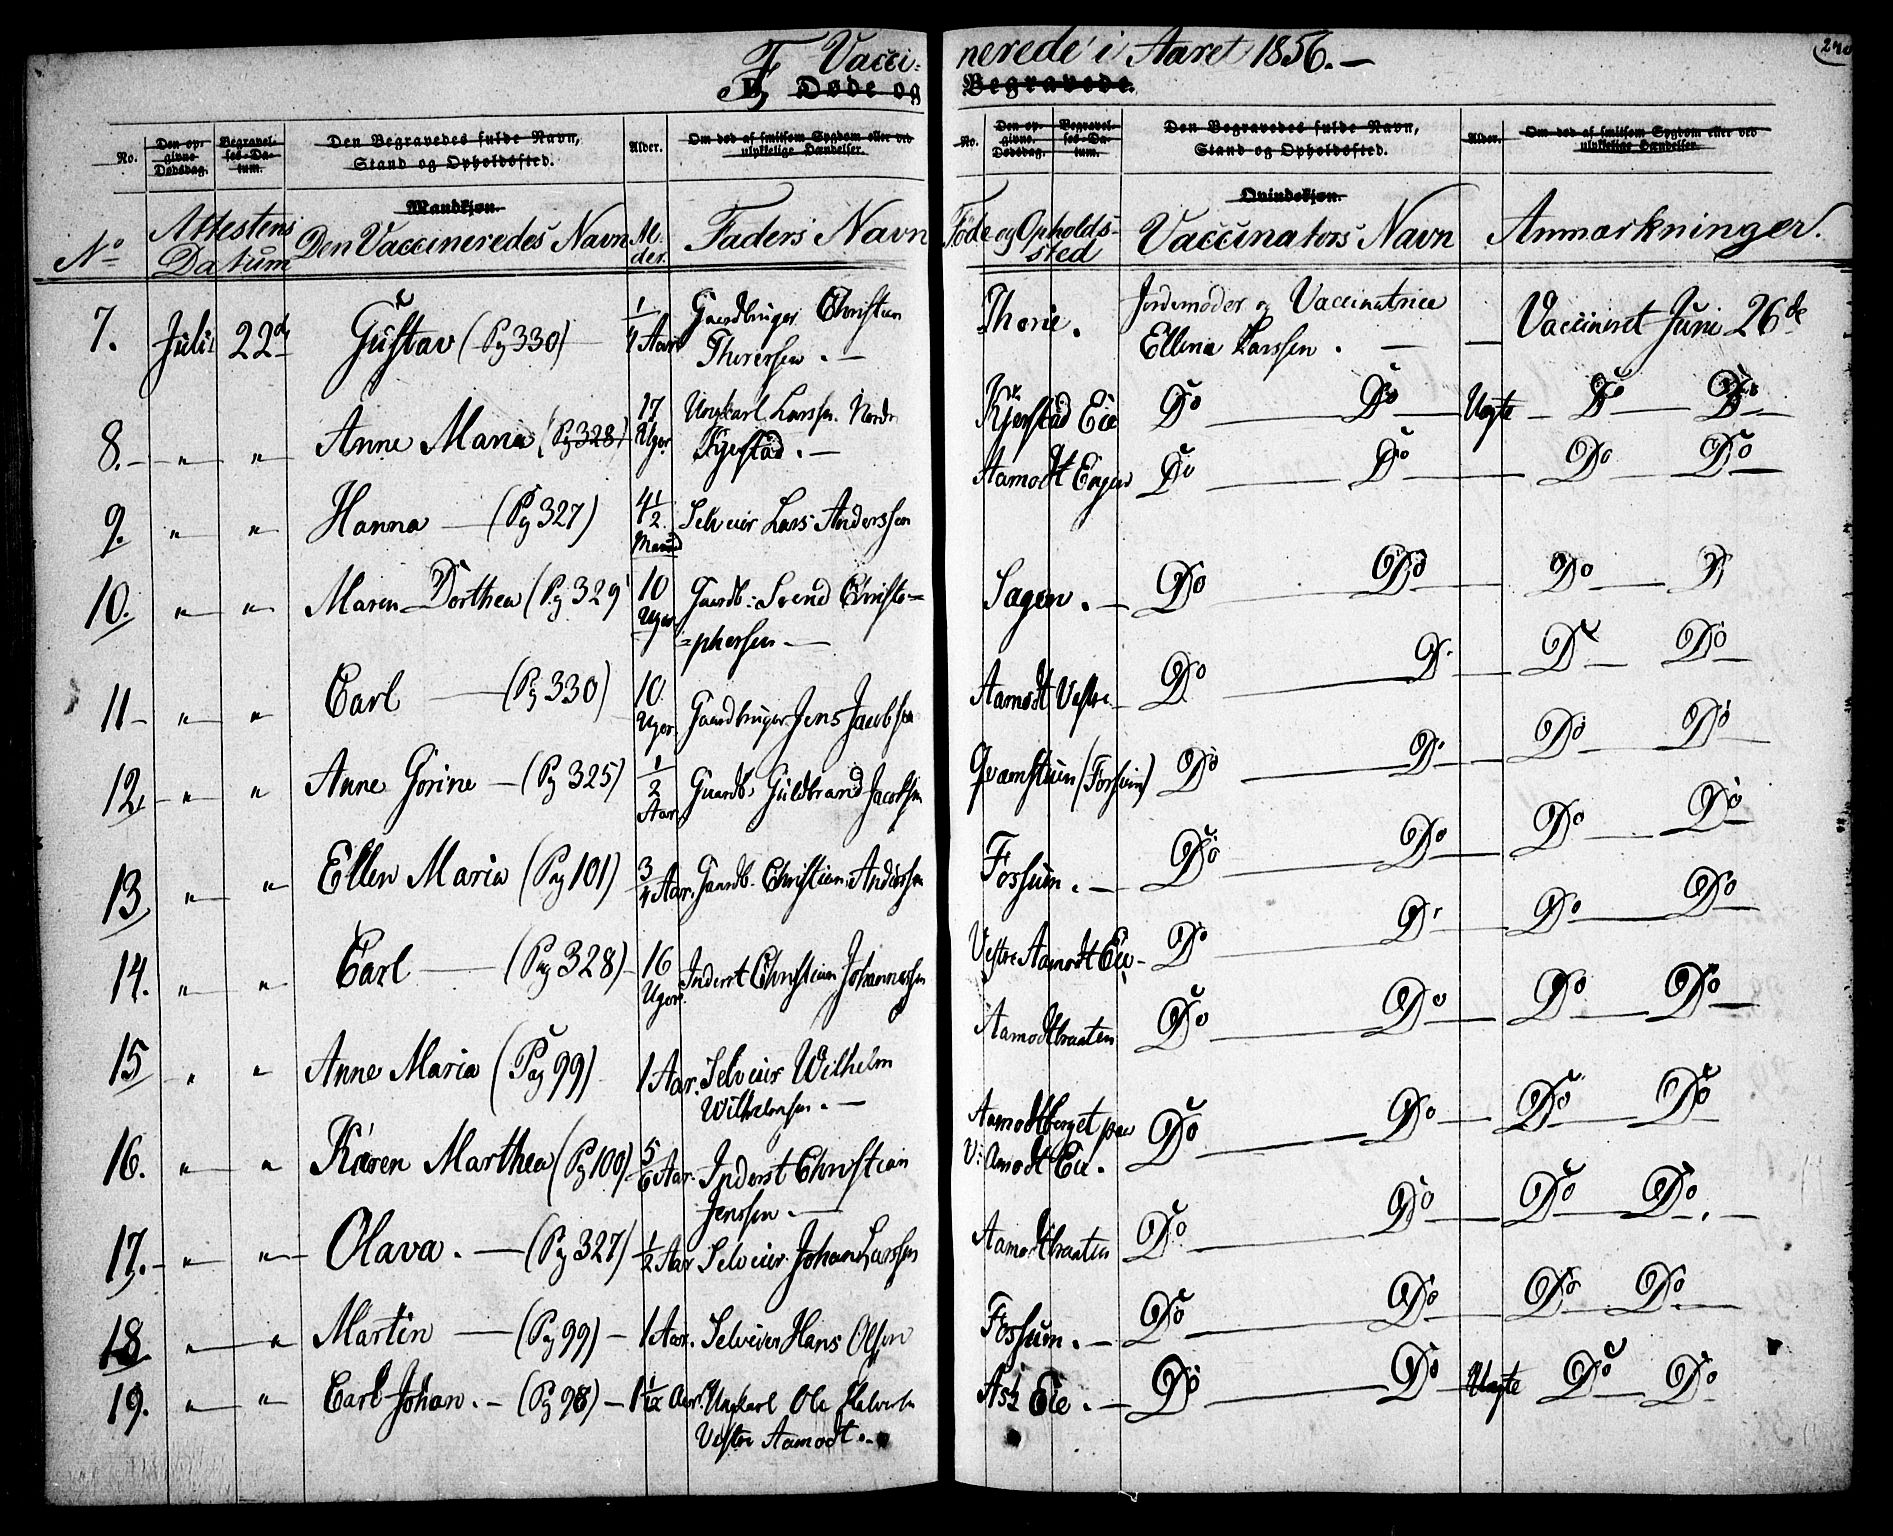 F, Vacci- nerede i Aaret 1856. —
240
D. Døde og Begravede.
No. Den opgivne Dødsdag. Begravelses-Datum. Den Begravedes fulde Navn, Stand og Opholdssted. Alder. Om død af smitsom Sygdom eller ved ulykkelige Hændelser. No. Den opgivne Dødsdag. Begravelses-Datum. Den Begravedes fulde Navn, Stand og Opholdssted. Alder. Om død af smitsom Sygdom eller ved ulykkelige Hændelser.
Mandkjøn. Qvindekjøn.
No Attestens Datum Den Vaccineredes Navn Alder. Faders Navn Føde og Opholdssted Vaccinators Navn Anmærkninger.
7. Juli 22de Gustav (Pg 330) 1/4 Aar Gaardbruger Christian Thorersen. — Thorie. Jordemoder og Vaccinatrice Ellena Larssen. — Vaccineret Juni 26de
8. — " — " Anne Maria (Pg 328) 17 Uger Ungkarl Larssen Nordre Kjerstad. — Kjerstad Eie Do — Do — Uægte — Do — Do
9. " — " Hanna — (Pg 327) 4 1/2 Maaned Selveier Lars Anderssen Aamodt Engen Do — Do — Do — Do
10. " — " Maren Dorthea (Pg 329) 10 Uger Gaardb: Svend Christo= =phersen — Sagen. — Do Do — Do — D
11 — " — " Carl — (Pg 330) 10 Uger Gaardbruger Jens Jacobsen Aamodt Vestre Do — Do — Do — Do
12. — " — " Anne Gorine — (Pg 325) 1/2 Aar Gaardb: Guldbrand Jacobsen Qvamstuen (Fossum) Do — Do — Do — Do
13. " — " Ellen Maria (Pag 101) 3/4 Aar. Gaardb. Christian Anderssen Fossum. — Do — Do — Do — Do
14. " — " Carl — (Pag 328) — 16 Uger Inderst Christian Johannessen Vestre Aamodt Eie — Do — Do — Do — Do
15 " — " Anne Maria (Pag 99) 1 Aar. Selveier Wilhelm Wilhelmsen. — Aamodtbraaten Do — Do — Do — Do
16. " — " Karen Marthea (Pg 100) 5/6 Aar. Inderst Christian Jenssen. — Aamodtberget paa V: Amodt Eie. Do — Do — Do — Do
17. — " — " — Olava. — (Pg 327) 1/2 Aar Selveier Johan Larssen Aamodtbraaten Do — Do — Do — Do. —
18 " — " Martin — (Pag 99) — 1 Aar. Selveier Hans Olsen Fossum. — Do — Do — Do — Do —
19. " — " Carl Johan. — (Pg 98) — 1 1/12 Aar. Ungkarl Ole Halvorsen Vestre Aamodt. — Ask Eie. — Do — Do — Uægte Do — Do